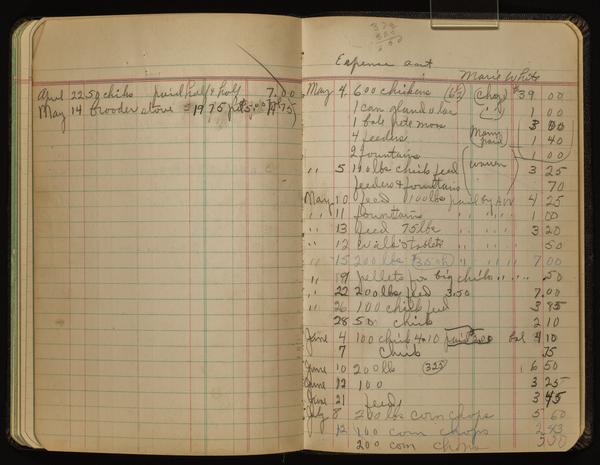 April 22 50 chiks paid half & half 7.00
May 14 brooder stove = 19 75 19.75
Expense acct
Marie White
May 4 600 chickens (6½) (Chez) $39 00
1 can 1 00
1 bale pete moss 3 00
4 feeders 1 40
2 fountains 1 00
" 5 100 lbs chick feed 3 25
feeders & fountains 70
May 10 feed 100 lbs paid by AW 4 25
" 11 fountains " " " 1 00
" 13 feed 75 lbs " " " 3 20
" 12 tablets " " " 50
" 15 200 lbs (3.50) " " " 7 00
" 19 pellets for big chiks " " " 50
" 22 200 lbs feed 3.50 7.00
" 26 100 chick feed 3 85
28 50 chick 2 10
June 4 100 chick 4.10 paid bal 4 10
7 Chick 75
June 10 200 lb (325) 6 50
June 12 100 3 25
June 21 feed 3 45
July 8 200 lbs corn chops 5 60
12 100 corn chops 2 83
200 corn chops